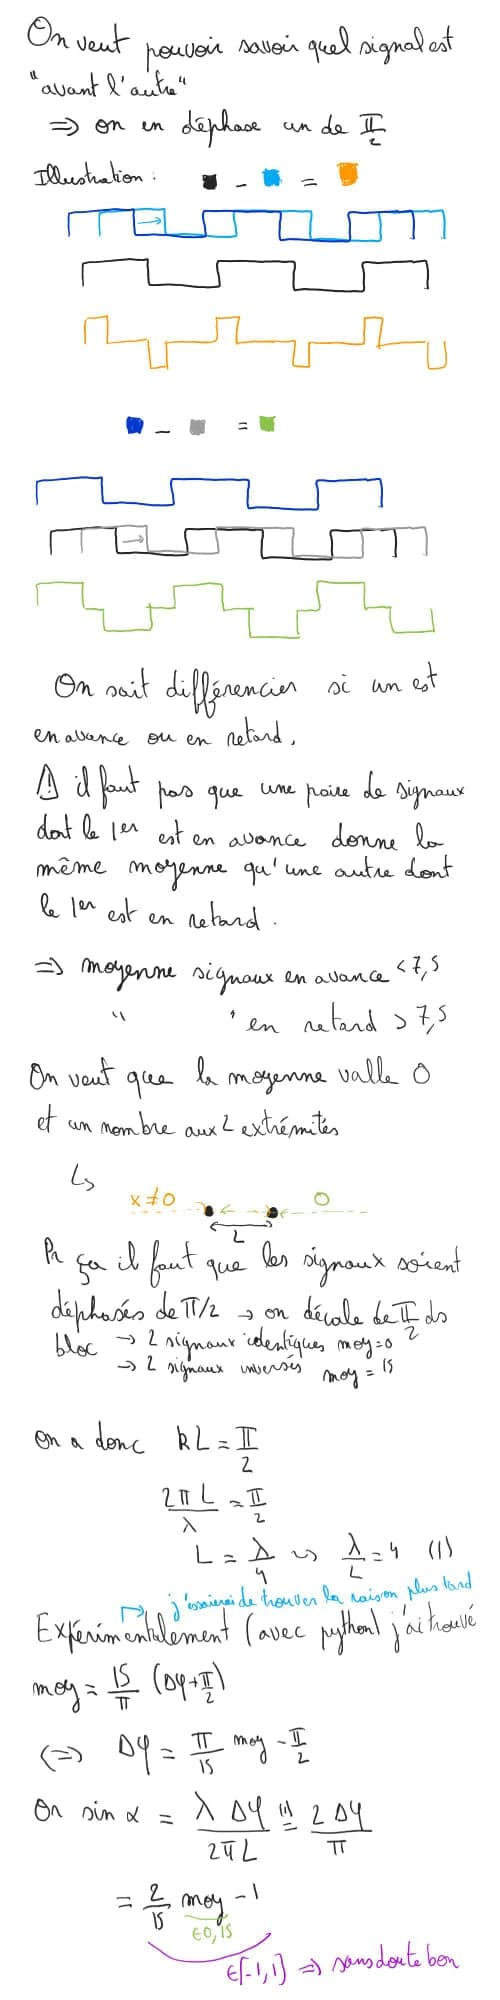 On veut pouvoir savoir quel signal est
"avant l'autre"
⇒ on en déphase un de π/2
Illustration : ■ - ■ = ■
■ - ■ = ■
On sait différencier si un est
en avance ou en retard,
⚠ il faut pas que une paire de signaux
dont le 1er est en avance donne la
même moyenne qu'une autre dont
le 1er est en retard.
⇒ moyenne signaux en avance < 7,5
" " en retard > 7,5
On veut que la moyenne valle 0
et un nombre aux 2 extrémités
↳
x≠0 ← ← 0
L
Pr ça il faut que les signaux soient
déphasés de π/2 → on décale de π/2 ds
bloc → 2 signaux identiques moy=0
→ 2 signaux inversés moy = 15
On a donc kL = π/2
2πL/λ = π/2
L = λ/4 ⇝ λ/L = 4 (1)
↱ j'essaierai de trouver la raison plus tard
Expérimentalement (avec python) j'ai trouvé
moy = 15/π (Δφ+π/2)
(=) Δφ = π/15 moy - π/2
Or sin α = λ Δφ/2πL (1)= 2 Δφ/π
= 2/15 moy - 1
∈0,15
∈[-1,1] ⇒ sans doute bon